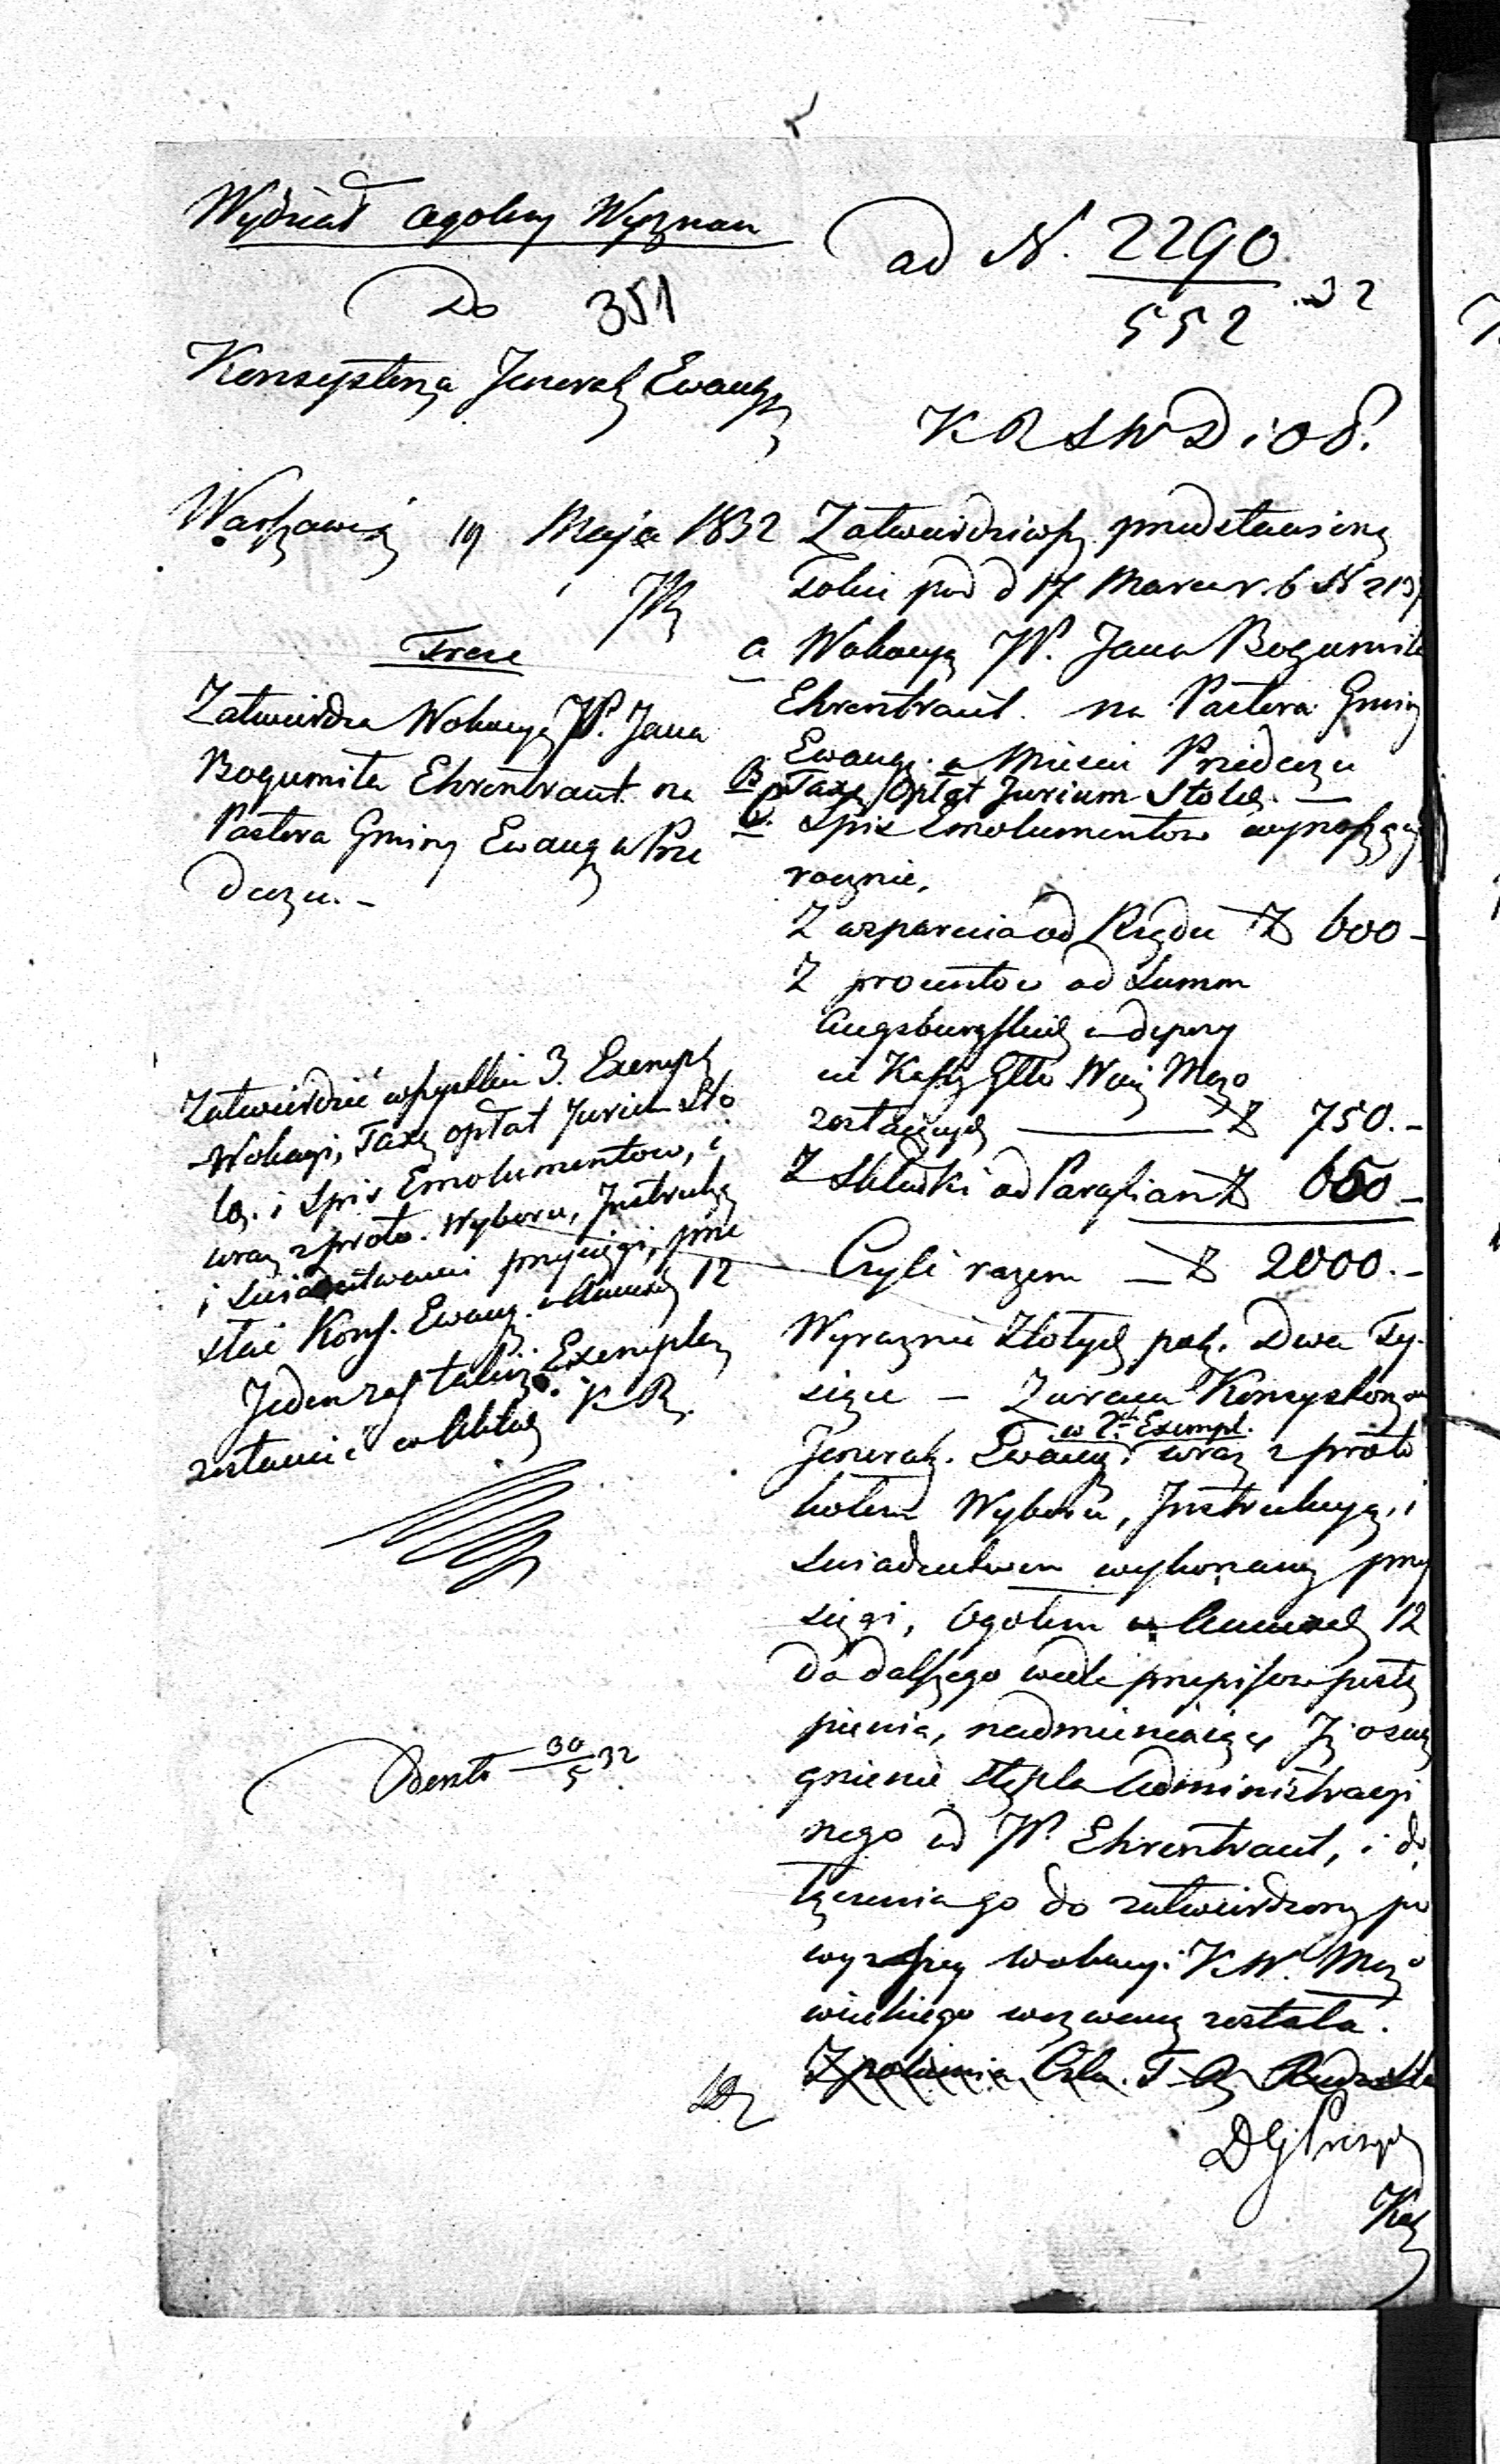 Wydział Ogolny Wyznan
Do 351
Konsystorza Jeneral. Ewang.
ad N. 2290
552 32
K R S W D i O P.
Warszawie 19 Maja 1832
Tresc
Zatwierdza Wokacyą W. Jana
Bogumiła Ehrentraut na
Pastora Gminy Ewang. w Prze
deczu. -
Zatwierdzić wszystkie 3. Exempl
Wokacyi, Taxę opłat Jurium Sto
lae. i Spis Emolumentow, i
wraz z proto. Wyboru, Instrukcyą
i swiadectwem przysięgi, prze
słać Kons. Ewang. w Annexach 12
Jeden zaś takiż Exemplarz
zostawić w Aktach K R.
30
5 32
Zatwierdziwszy przedstawioną
sobie pod d 17 Marca r. b N 219
a Wokacyą W. Jana Bogumiła
Ehrentraut. na Pastora Gminy
Ewang. w Miescie Przedeczu
B Taxę Opłat Jurium Stolae. —
C. Spis Emolumentow wynoszący
rocznie,
Z wsparcia od Rządu Z 600 -
Z procentow od Summ
Augsburgskich w depozy
cie Kassy Głto Woj Mazo
zostających — Z 750. -
Z Składki od Parafian Z 650 -
Czyli razem — Z 2000. -
Wyraznie Złotych pol. Dwa Ty-
siące - Zwraca Konsystorzowi
w 2ch Exempl.
Jeneral. Ewang. wraz z proto
kołem Wyboru, Instrukcyą, i
swiadectwem wykonaney przy
sięgi, Ogołem w Annexach 12
do dalszego wedle przepisow postą
pienia, nadmieniaiąc, Iż o scią
gnienie stępla Administracyi
nego od W. Ehrentraut, i do
łączenia go do zatwierdzoney po
wyzszey wokacyi K. W. Mazo
wieckiego wezwaną została.
D G Prezyd